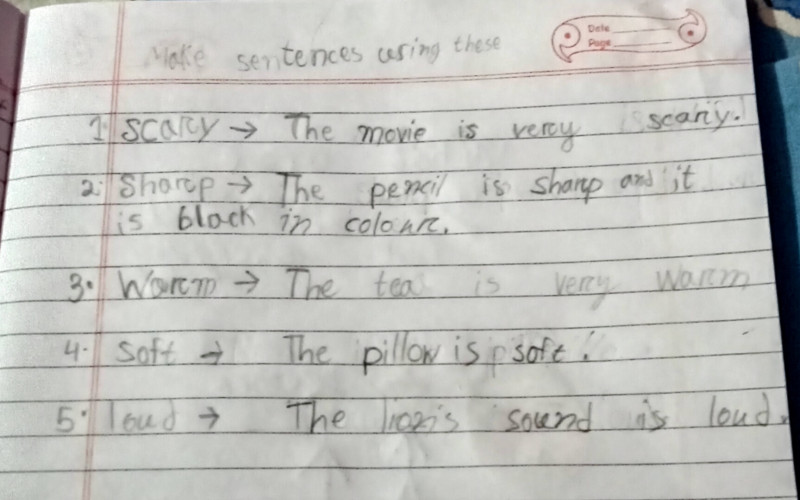 Make sentences using these
Date
Page
1. Scary → The movie is very scary.
2. Sharp → The pencil is sharp and it
is black in colour.
3. Warm → The tea is very warm
4. Soft → The pillow is soft.
5. loud → The lion's sound is loud.